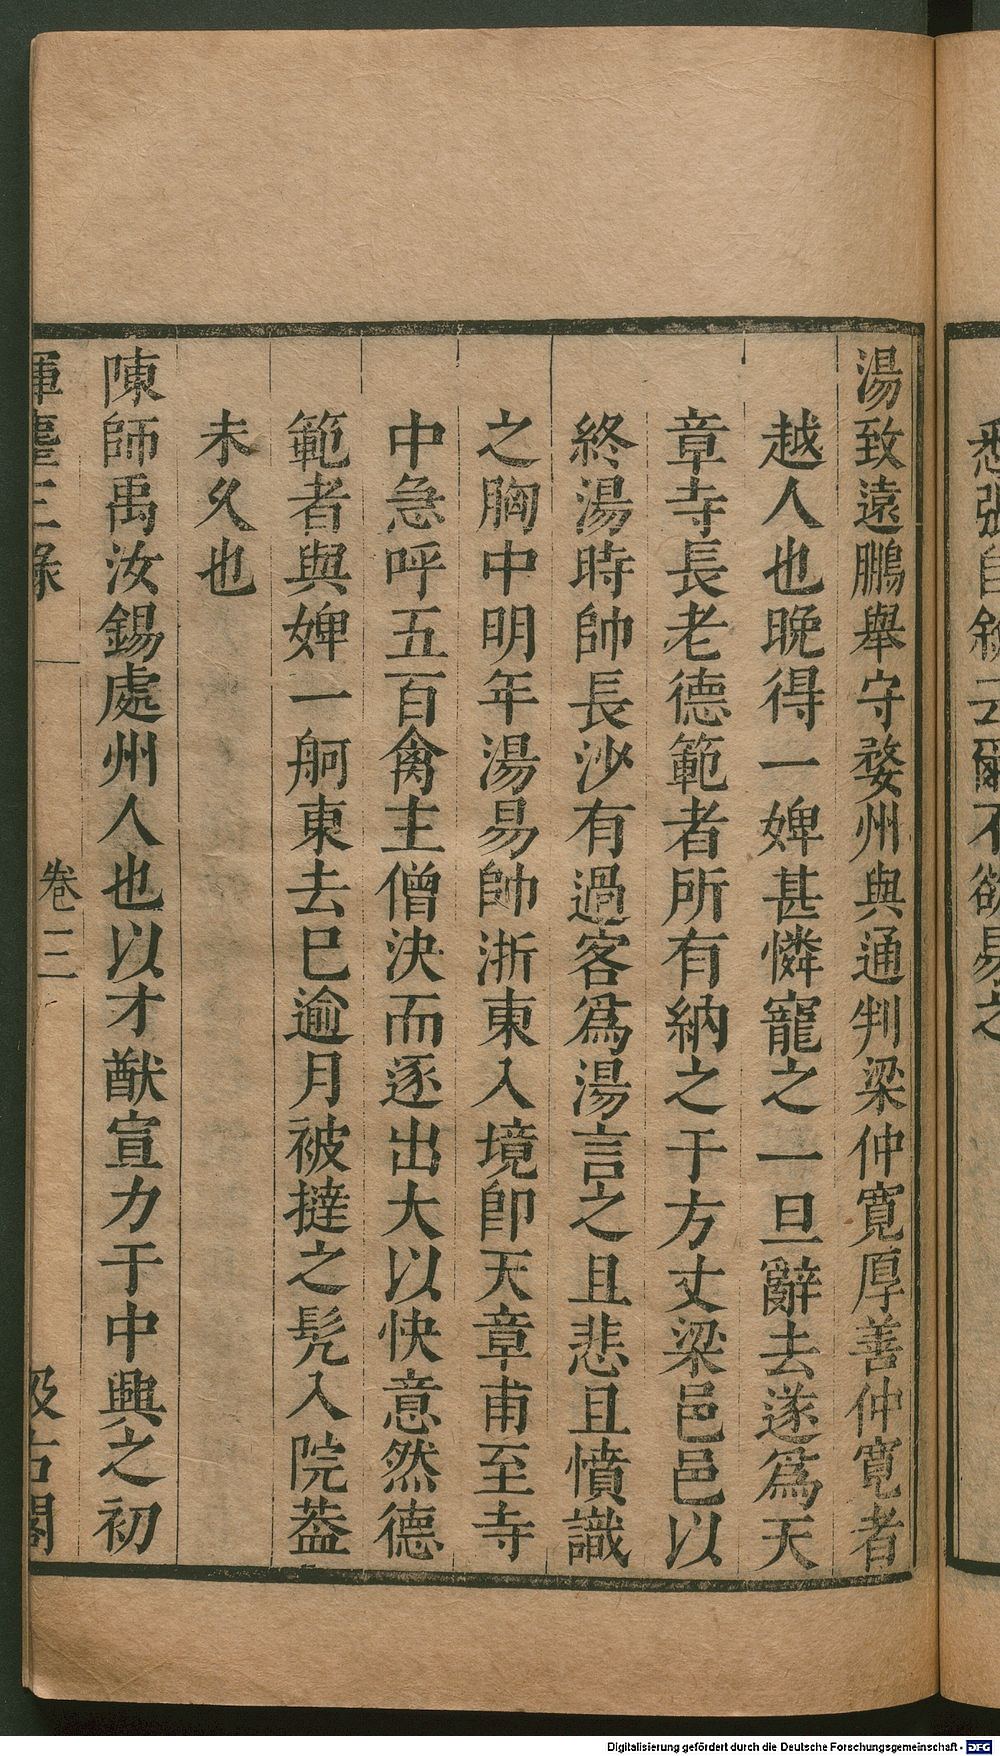 悉張自敘云爾不欲易之
湯致遠鵬舉守婺州與通判梁仲寬厚善仲寬者
越人也晚得一婢甚憐寵之一旦辭去遂爲天
章寺長老德範者所有納之于方丈梁邑邑以
終湯時帥長沙有過客爲湯言之且悲且憤識
之胸中明年湯易帥浙東入境卽天章甫至寺
中急呼五百禽主僧決而逐出大以快意然德
範者與婢一舸東去巳逾月被撻之髠入院葢
未久也
陳師禹汝錫處州人也以才猷宣力于中興之初
揮麈三錄 卷三 汲古閣
Digitalisierung gefördert durch die Deutsche Forschungsgemeinschaft - DFG